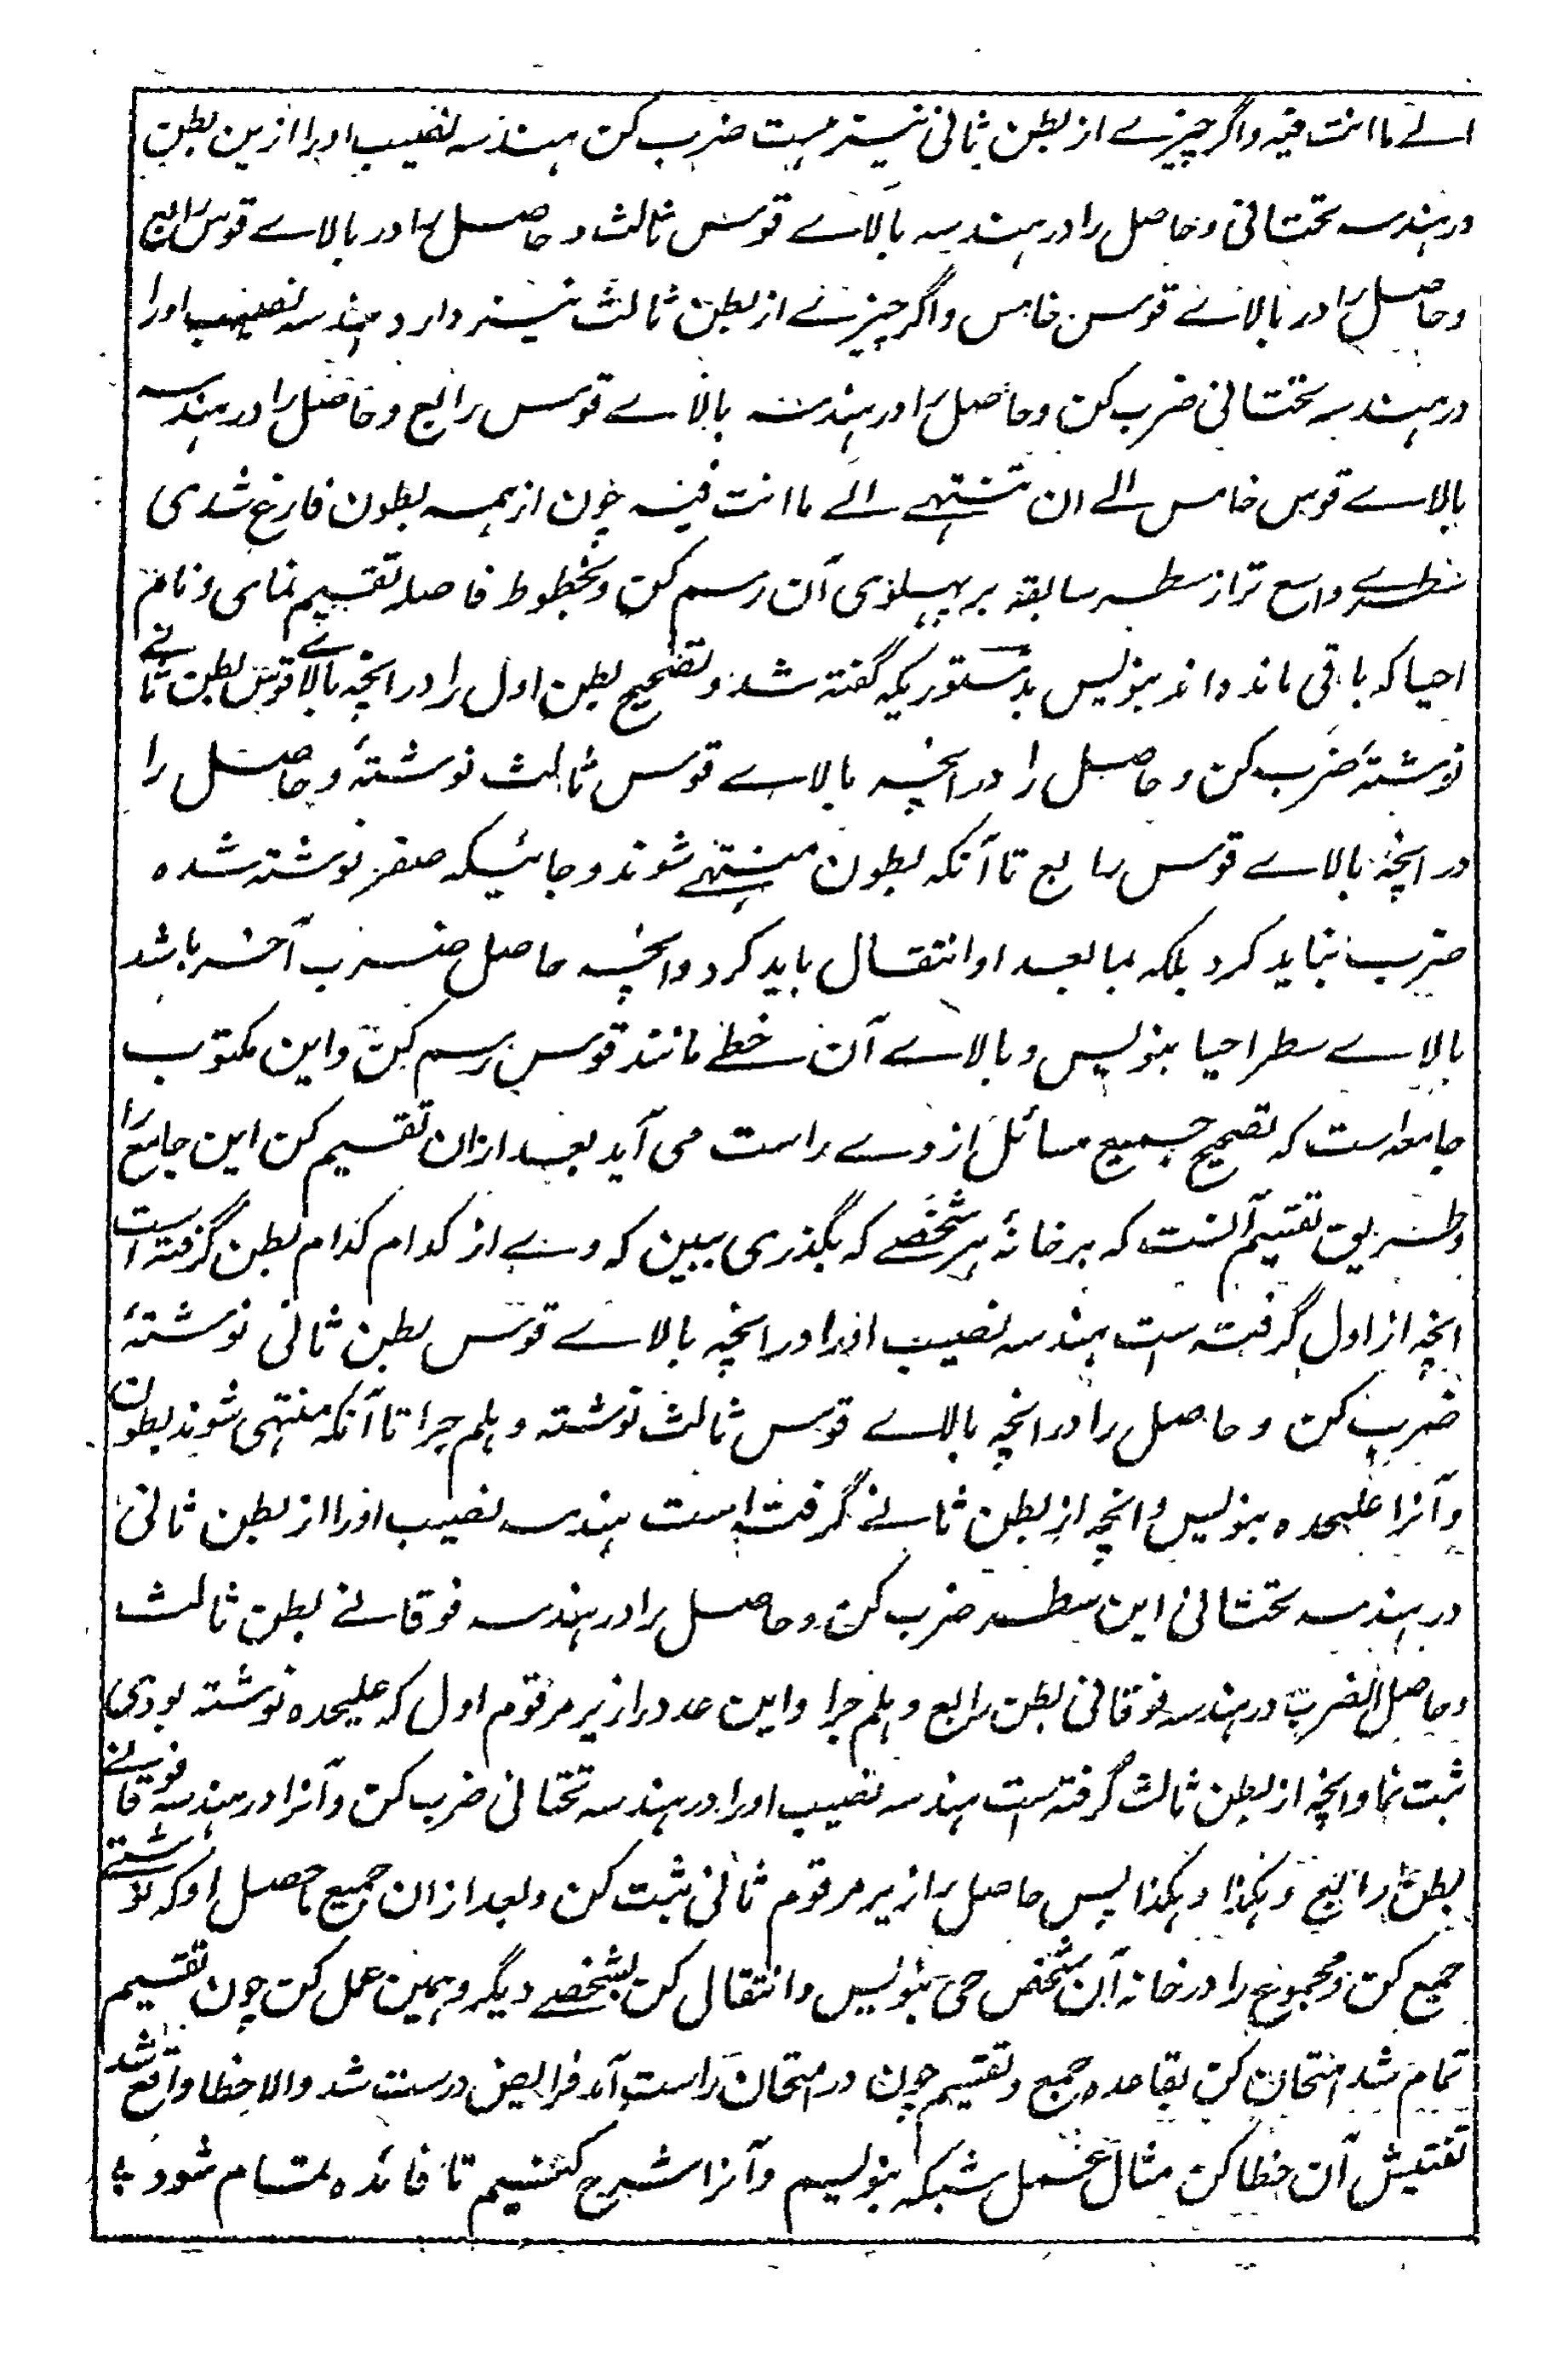 الے ما انت فیه واگر چیزے از بطن ثانی نیز هست ضرب کن هندسه نصیب اورا ازین بطن
در هندسه تحتانی و حاصل را در هندسه بالاے قوس ثالث و حاصل را در بالاے قوس رابع
و حاصل را در بالاے قوس خامس واگر چیزے از بطن ثالث نیز دارد هندسه نصیب اورا
در هندسه تحتانی ضرب کن و حاصل را در هندسه بالاے قوس رابع و حاصل را در هندسه
بالاے قوس خامس الے ان تنتهے الے ما انت فیه چون از همه بطون فارغ شدی
سطرے واسع تر از سطر سابقه بر پهلوی آن رسم کن و بخطوط فاصله تقسیم نمای و نام
احیا که باقی مانده اند بنویس بدستوریکه گفته شد و تصحیح بطن اول را در انچه بالاے قوس بطن ثانے
نوشتهٔ ضرب کن و حاصل را در انچه بالاے قوس ثالث نوشتهٔ و حاصل را
در انچه بالاے قوس رابع تا آنکه بطون منتهے شوند و جائیکه صفر نوشته شده
ضرب نباید کرد بلکه بما بعد او انتقال باید کرد و انچه حاصل ضرب آخر باشد
بالاے سطر احیا بنویس و بالاے آن خطے مانند قوس رسم کن و این مکتوب
جامعه است که تصحیح جمیع مسائل از وے راست می آید بعد از ان تقسیم کن این جامع را
و طریق تقسیم آنست که بر خانهٔ هر شخصے که بگذری ببین که وے از کدام کدام بطن گرفته است
انچه از اول گرفته ست هندسه نصیب اورا در انچه بالاے قوس بطن ثانی نوشتهٔ
ضرب کن و حاصل را در انچه بالاے قوس ثالث نوشته و هلم جرا تا آنکه منتهی شوند بطون
و آنرا علیحده بنویس و انچه از بطن ثانے گرفته است هندسه نصیب اورا از بطن ثانی
در هندسه تحتانی این سطر ضرب کن و حاصل را در هندسه فوقانے بطن ثالث
و حاصل الضرب در هندسه فوقانی بطن رابع و هلم جرا و این عدد را زیر مرقوم اول که علیحده نوشته بودی
ثبت نما و انچه از بطن ثالث گرفته ست هندسه نصیب اورا در هندسه تحتانی ضرب کن و آنرا در هندسه فوقانے
بطن رابع و هکذا و هکذا پس حاصل را زیر مرقوم ثانی ثبت کن و بعد از ان جمیع حاصل او که نوشتے
جمع کن و مجموع را در خانه آن شخص حی بنویس و انتقال کن بشخصے دیگر و همین عمل کن چون تقسیم
تمام شد امتحان کن بقاعده جمع و تقسیم چون در امتحان راست آمد فرایض درست شد والا خطا واقع شد
تفتیش آن خطا کن مثال عمل شبکه بنویسیم و آنرا شرح کنیم تا فائده تمام شود